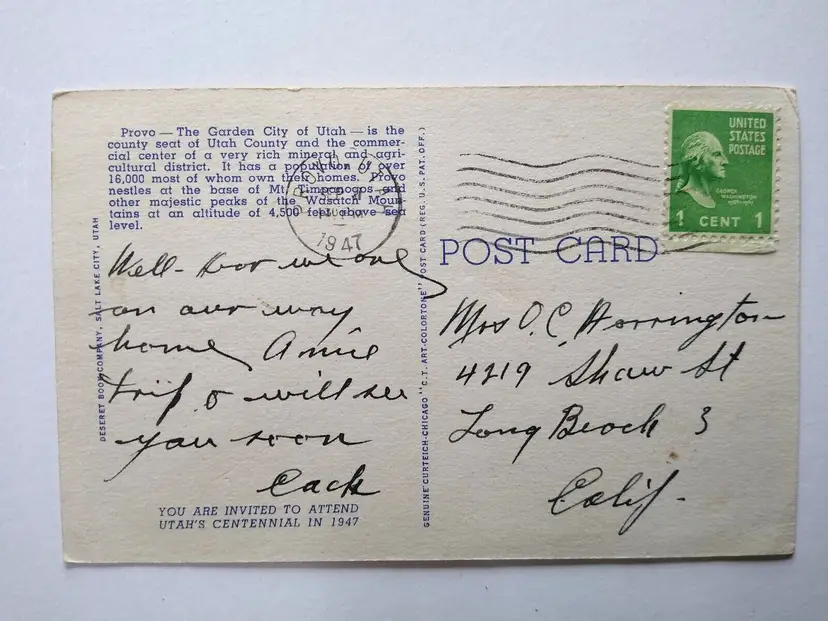 Provo — The Garden City of Utah — is the
county seat of Utah County and the commer-
cial center of a very rich mineral and agri-
cultural district. It has a population of over
16,000 most of whom own their homes. Provo
nestles at the base of Mt. Timpanogos and
other majestic peaks of the Wasatch Moun-
tains at an altitude of 4,500 feet above sea
level.
1947
Well - here we are
on our way
home, A nice
trip & will see
you soon
YOU ARE INVITED TO ATTEND
UTAH'S CENTENNIAL IN 1947
DESERET BOOK COMPANY, SALT LAKE CITY, UTAH
GENUINE CURTEICH-CHICAGO "C.T. ART-COLORTONE" POST CARD (REG. U.S. PAT. OFF.)
UNITED
STATES
POSTAGE
GEORGE
WASHINGTON
1 CENT 1
POST CARD
Mrs O. C. Harrington
4219 Shaw St
Long Beach 3
Calif.